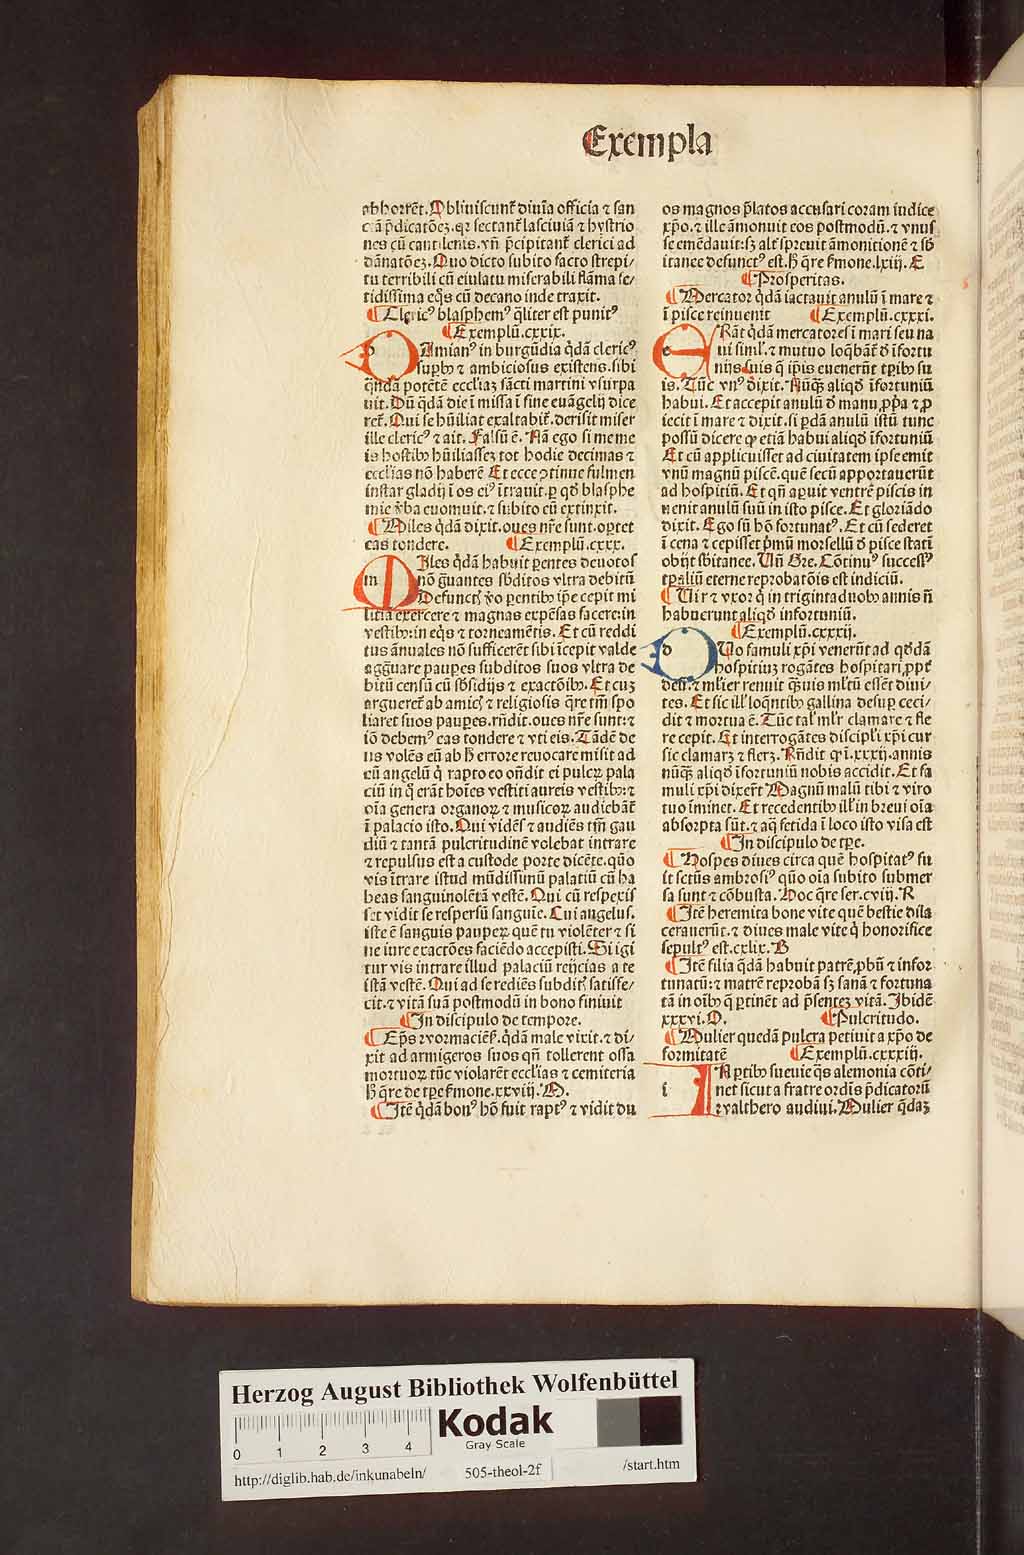 Exempla
abhorrēt. Obliuiscunt᷑ diuīa officia ⁊ san
ctā p̄dicatōeꝫ. qꝛ sectant᷑ lasciuiā ⁊ hystrio
nes cū cantilenis. vn̄ p̄cipitant᷑ clerici ad
dānatōeꝫ. Quo dicto subito facto strepi⸗
tu terribili cū eiulatu miserabili flāma fe⸗
tidissima eq̊s cū decano inde traxit.
¶ Clericꝰ blasphemꝰ q̄liter est punitꝰ
¶ Exemplū. cxxix.
DAmianꝰ in burgūdia q̄dā clericꝰ
supbꝰ ⁊ ambiciosus existens. sibi
q̄ndā potētē eccl'iaꝫ sācti martini vsurpa
uit. Dū q̄dā die ī missa ī fine euāgelij dice
ret᷑. Qui se hūiliat exaltabit᷑. derisit miser
ille clericꝰ ⁊ ait. Falsū ē. Nā ego si meme
is hostibꝰ hūiliasseꝫ tot hodie decimas ⁊
eccl'ias nō haberē Et ecce ꝯtinue fulmen
instar gladij ī os eiꝰ ītrauit. ꝑ qd̄ blasphe
mie v̄ba euomuit. ⁊ subito eū extinxit.
¶ Miles q̄dā dixit. oues nr̄e sunt. oꝑtet
eas tondere. ¶ Exemplū. cxxx.
MIles q̄dā habuit ꝑentes deuotos
nō g̈uantes sb̄ditos vltra debitū
Defunctꝭ v̄o ꝑentibꝰ ip̄e cepit mi
litia exercere ⁊ magnas expēsas facere: in
vestibꝰ: in eq̊s ⁊ torneamētis. Et cū reddi
tus ānuales nō sufficerēt sibi īcepit valde
agg̈uare pauꝑes subditos suos vltra de
bitū censū cū sb̄sidijs ⁊ exactōibꝰ. Et cuꝫ
arguereť ab amicꝭ ⁊ religiosis q̄re tm̄ spo
liaret suos pauꝑes. rn̄dit. oues nr̄e sunt: ⁊
iō debemꝰ eas tondere ⁊ vti eis. Tādē de
us volēs eū ab h̄ errore reuocare misit ad
eū angelū q̄ rapto eo on̄dit ei pulcꝝ pala
ciū in q̄ erāt hoīes vestiti aureis vestibꝰ: ⁊
oīa genera organoꝝ ⁊ musicoꝝ audiebāť
ī palacio isto. Qui vidēs ⁊ audiēs tm̄ gau
diū ⁊ tantā pulcritudinē volebat intrare
⁊ repulsus est a custode porte dicēte. quō
vis ītrare istud mūdissimū palatiū cū ha
beas sanguinolētā vestē. Qui cū respexis
set vidit se respersū sanguīe. Cui angelus.
iste ē sanguis pauꝑeꝝ quē tu violēter ⁊ si
ne iure exactōes faciēdo accepisti. Si igi
tur vis intrare illud palaciū reijcias a te
istā vestē. Qui ad se rediēs subditꝭ satisfe⸗
cit. ⁊ vitā suā postmodū in bono finiuit
¶ In discipulo de tempore.
¶ Ep̄s wormaciēsꝭ. q̄dā male vixit. ⁊ di⸗
xit ad armigeros suos qn̄ tollerent ossa
mortuoꝝ tūc violarēt eccl'ias ⁊ cemiteria
h̄ q̄re de tꝑe s̓mone. xxviij. M.
¶ Itē q̄dā bonꝰ hō fuit raptꝰ ⁊ vidit du
os magnos p̄latos accusari coram iudice
xp̄o. ⁊ ille āmonuit eos postmodū. ⁊ vnus
se emēdauit: sꝫ alt᷑ spreuit āmonitionē ⁊ sb̄
itanee defunctꝰ est. h̄ q̄re s̓mone. lxiij. E
¶ Prosperitas.
¶ Mercator q̄dā iactauit anulū ī mare ⁊
ī pisce reinuenit ¶ Exemplū. cxxxi.
ERāt q̄dā mercatores ī mari seu na
ui siml'. ⁊ mutuo loq̄bāť d̄ īfortu
nijs suis q̄ ip̄is euenerūt tꝑibꝰ su
is. Tūc vnꝰ dixit. Nūq̄ꝫ aliqd̄ īfortuniū
habui. Et accepit anulū d̄ manu ꝓpͥa ⁊ ꝓ
iecit ī mare ⁊ dixit. si ꝑdā anulū istū tunc
possū dicere ꝙ etiā habui aliqd̄ īfortuniū
Et cū applicuisset ad ciuitatem ipse emit
vnū magnū piscē. quē secū apportauerūt
ad hospitiū. Et qn̄ aꝑuit ventrē piscis in
uenit anulū suū in isto pisce. Et gloriādo
dixit. Ego sū hō fortunatꝰ. Et cū sederet
ī cena ⁊ cepisset p̄mū morsellū d̄ pisce statī
obijt sb̄itanee. Un̄ Gre. Cōtinuꝰ successꝰ
tꝑaliū eterne reprobatōis est indiciū.
¶ Uir ⁊ vxor q̄ in trigintaduobꝰ annis n̄
habuerunt aliqd̄ infortuniū.
¶ Exemplū. cxxxij.
DUo famuli xp̄i venerūt ad qd̄dā
hospitiuꝫ rogātes hospitari ꝓpt᷑
deū. ⁊ ml'ier renuit q̄uis ml'tū essēt diui⸗
tes. Et sic ill' loq̄ntibꝰ gallina desuꝑ ceci⸗
dit ⁊ mortua ē. Tūc tal' ml'r clamare ⁊ fle
re cepit. Et interrogātes discipl'i xp̄i cur
sic clamarꝫ ⁊ flerꝫ. Rn̄dit ꝙ ī. xxxij. annis
nūq̄ꝫ aliqd̄ īfortuniū nobis accidit. Et fa
muli xp̄i dixer̄t Magnū malū tibi ⁊ viro
tuo īminet. Et recedentibꝰ ill' in breui oīa
absorpta sūt. ⁊ aq̄ fetida ī loco isto visa est
¶ In discipulo de tꝑe.
¶ Hospes diues circa quē hospitatꝰ fu
it sctūs ambrosiꝰ quō oīa subito submer
sa sunt ⁊ cōbusta. Hoc q̄re ser. cviij. R
¶ Itē heremita bone vite quē bestie dila
cerauerūt. ⁊ diues male vite q̄ honorifice
sepultꝰ est. cxlix. B
¶ Itē filia q̄dā habuit patrē ꝓbū ⁊ infor
tunatū: ⁊ matrē reprobā sꝫ sanā ⁊ fortuna
tā in oībꝰ q̄ ꝑtinēt ad p̄senteꝫ vitā. Ibidē
xxxvi. O. ¶ Pulcritudo.
¶ Mulier quedā pulcra petiuit a xp̄o de
formitatē ¶ Exemplū. cxxxiij.
IN ꝑtibꝰ sueuie q̄s alemonia cōti⸗
net sicut a fratre ordīs p̄dicatorū
walthero audiui. Mulier q̄daꝫ
Herzog August Bibliothek Wolfenbüttel
Kodak
Gray Scale
0 1 2 3 4
http://diglib.hab.de/inkunabeln/ 505-theol-2f /start.htm